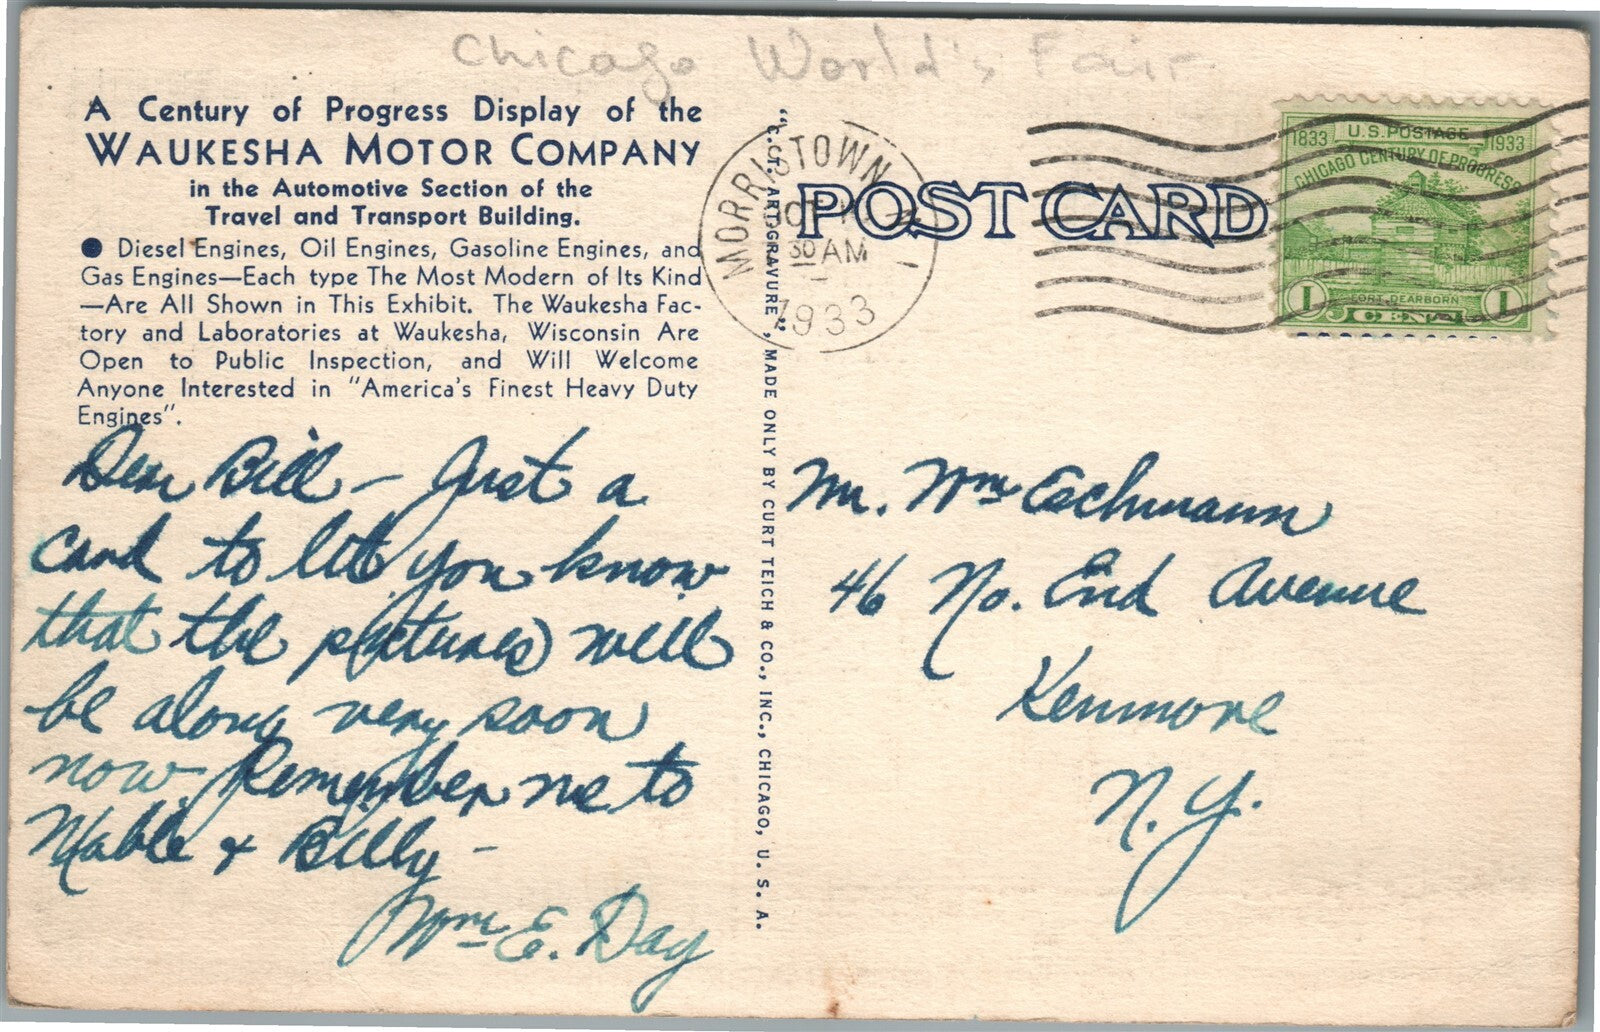 Chicago World's Fair
A Century of Progress Display of the
WAUKESHA MOTOR COMPANY
in the Automotive Section of the
Travel and Transport Building.
● Diesel Engines, Oil Engines, Gasoline Engines, and
Gas Engines—Each type The Most Modern of Its Kind
—Are All Shown in This Exhibit. The Waukesha Fac-
tory and Laboratories at Waukesha, Wisconsin Are
Open to Public Inspection, and Will Welcome
Anyone Interested in "America's Finest Heavy Duty
Engines".
Dear Bill – Just a
card to let you know
that the picture(s) will
be along very soon
now. Remember me to
Mable & Billy –
Wm E. Day
"C.T. ART-GRAVURE", MADE ONLY BY CURT TEICH & CO., INC., CHICAGO, U. S. A.
MORRISTOWN
30 AM
1933
POST CARD
1833 U.S. POSTAGE 1933
CHICAGO CENTURY OF PROGRESS
FORT DEARBORN
1 CENT 1
Mr. Wm Eschmann
46 No. End Avenue
Kenmore
N. Y.